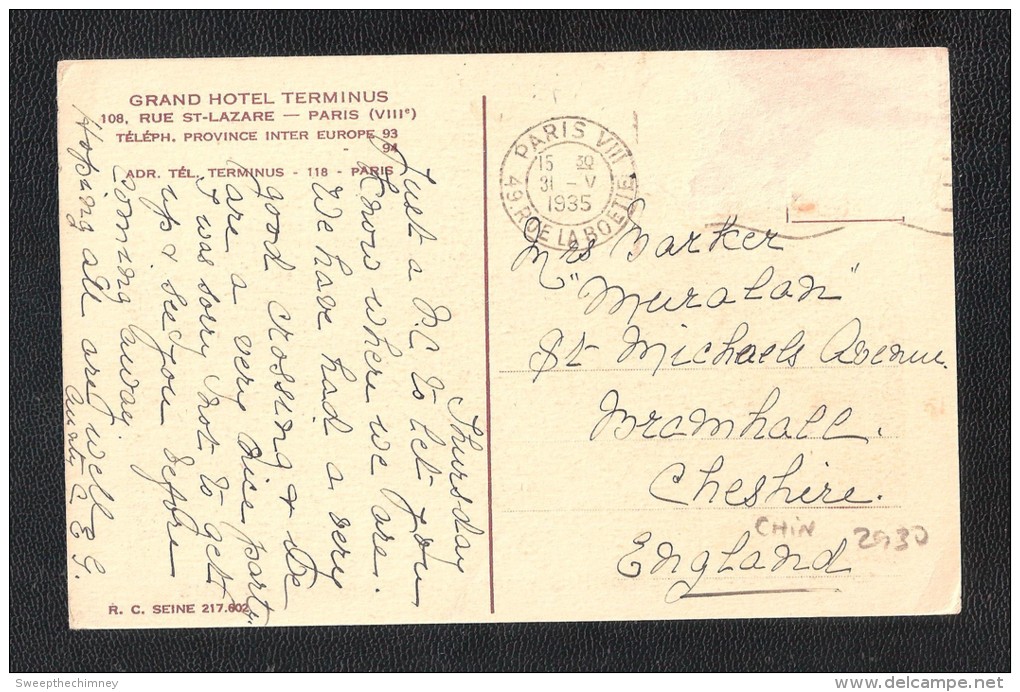 GRAND HOTEL TERMINUS
108, RUE ST-LAZARE — PARIS (VIIIe)
TÉLÉPH. PROVINCE INTER EUROPE 93
- 94
ADR. TÉL. TERMINUS - 118 - PARIS
Thursday
Just a P.C to let you
know where we are.
We have had a very
good crossing & We
are a very nice party.
I was sorry not to get
up & see you before
coming away.
Hoping all are well
Aunty C E G.
R. C. SEINE 217.602
PARIS VIII
15 30
31 - V
1935
49. RUE LA BOETIE
Mrs Barker
"Muralan"
St Michaels Avenue
Bramhall.
Cheshire.
England
CHIN 2930
Sweepthechimney
www.delcampe.net